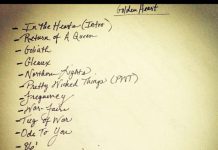 Golden Heart
- In The Hearts (Intro)
- Return of A Queen
- Goliath
- Gleaux
- Northern Lights
- Pretty Wicked Things (PWT)
- Frequency
- War Fair
- Tug of War
- Ode To You
- 86